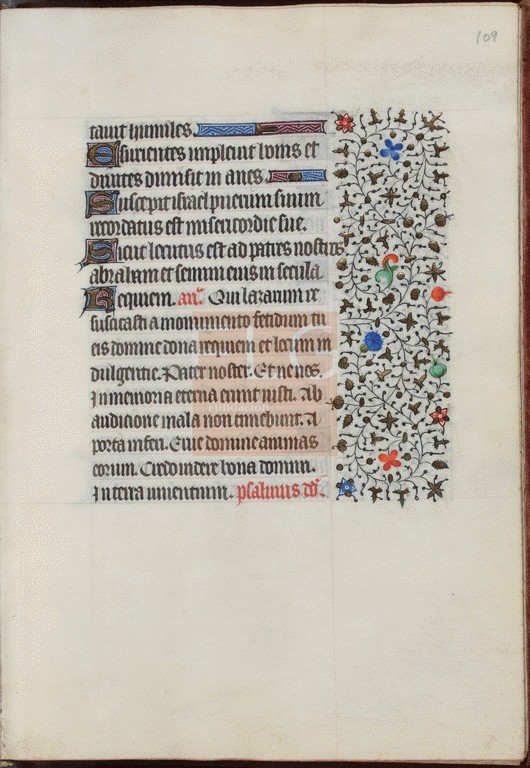 109
tauit humiles.
Esurientes impleuit bonis et
diuites dimisit in anes.
Suscepit israel puerum suum
recordatus est misericordie sue.
Sicut locutus est ad patres nostros
abraham et semini eius in secula
Requiem. an͂. Qui lazarum re
suscitasti a monumento fetidum tu
eis domine dona requiem et locum in
dulgentie. Pater noster. Et ne nos.
In memoria eterna erunt iusti. Ab
auditione mala non timebunt. A
porta inferi. Erue domine animas
eorum. Credo videre bona domini.
In terra uiuentium. psalmus dd̃.
FLG
fundación